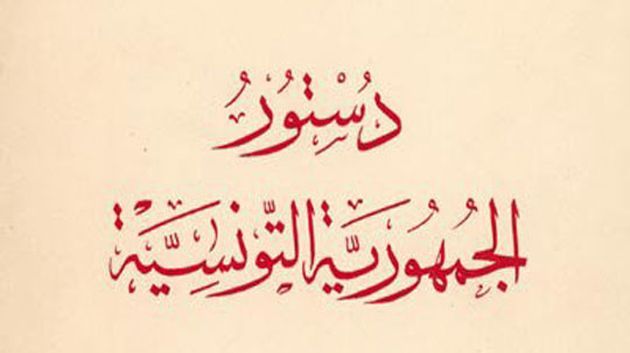 دُسْتُورُ
الجُمْهُورِيَّةِ التُّونِسِيَّةِ